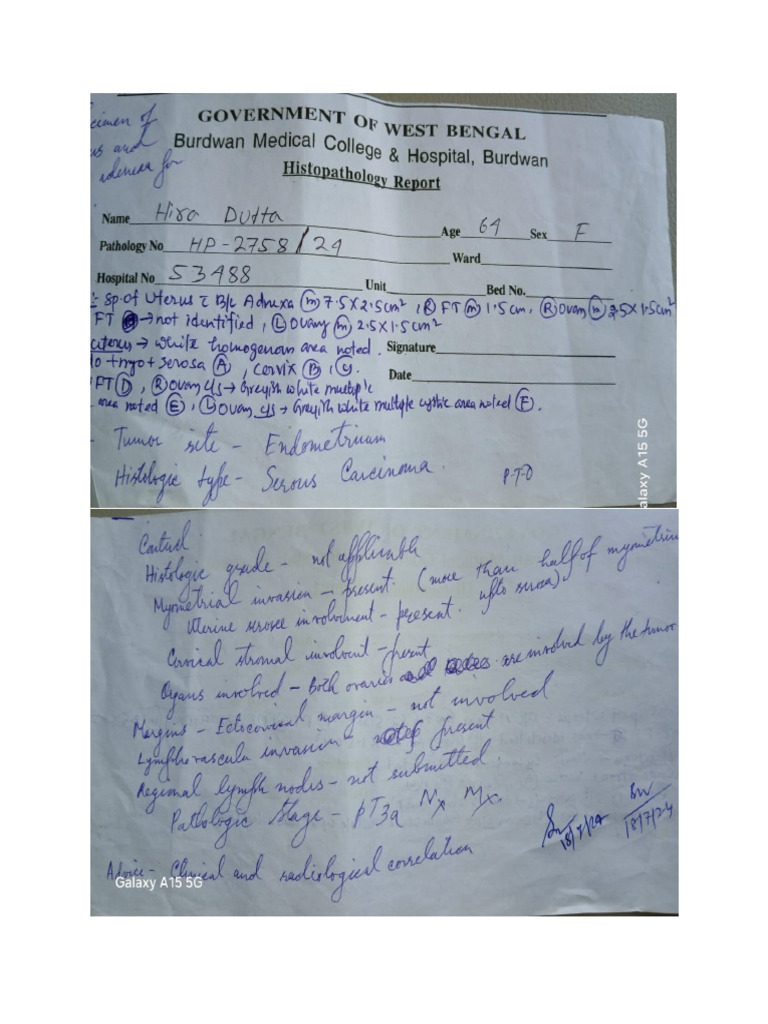 cimen of
us and
adenexa for
GOVERNMENT OF WEST BENGAL
Burdwan Medical College & Hospital, Burdwan
Histopathology Report
Name Hira Dutta Age 64 Sex F
Pathology No HP-2758/24 Ward
Hospital No 53488 Unit Bed No.
Sp. of Uterus c B/L Adnexa (m) 7.5X2.5cm², (R) FT (m) 1.5cm, (R) Ovary (m) 2.5X1.5cm²
FT → not identified, (L) Ovary (m) 2.5X1.5cm²
uterus → White homogenous area noted.
Signature
do + myo + serosa (A), Cervix (B), (C).
Date
FT (D), (R) Ovary c/s → Greyish white multiple
area noted (E), (L) Ovary c/s → Greyish white multiple cystic area noted (F).
Tumor site - Endometrium
Histologic type - Serous Carcinoma.
P.T.O
Galaxy A15 5G
Contud.
Histologic grade - not applicable
Myometrial invasion - present. (more than half of myometrium
upto serosa)
Uterine serosa involvement - present.
Cervical stromal involvent - present
Organs involved - Both ovaries are involved by the tumor
Margins - Ectocervical margin - not involved
Lymphovascular invasion - present
Regional lymph nodes - not submitted.
Pathologic stage - pT3a Nx Mx.
18/7/24
18/7/24
Advice - Clinical and radiological correlation
Galaxy A15 5G